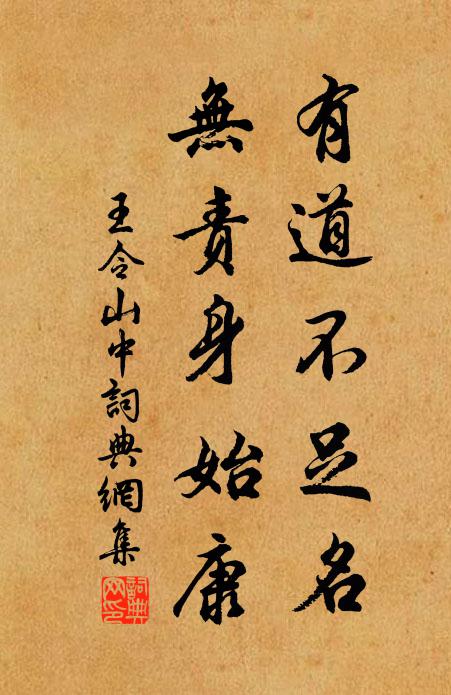 有道不足名
無責身始康
王令山中詞典網集
詞典網印